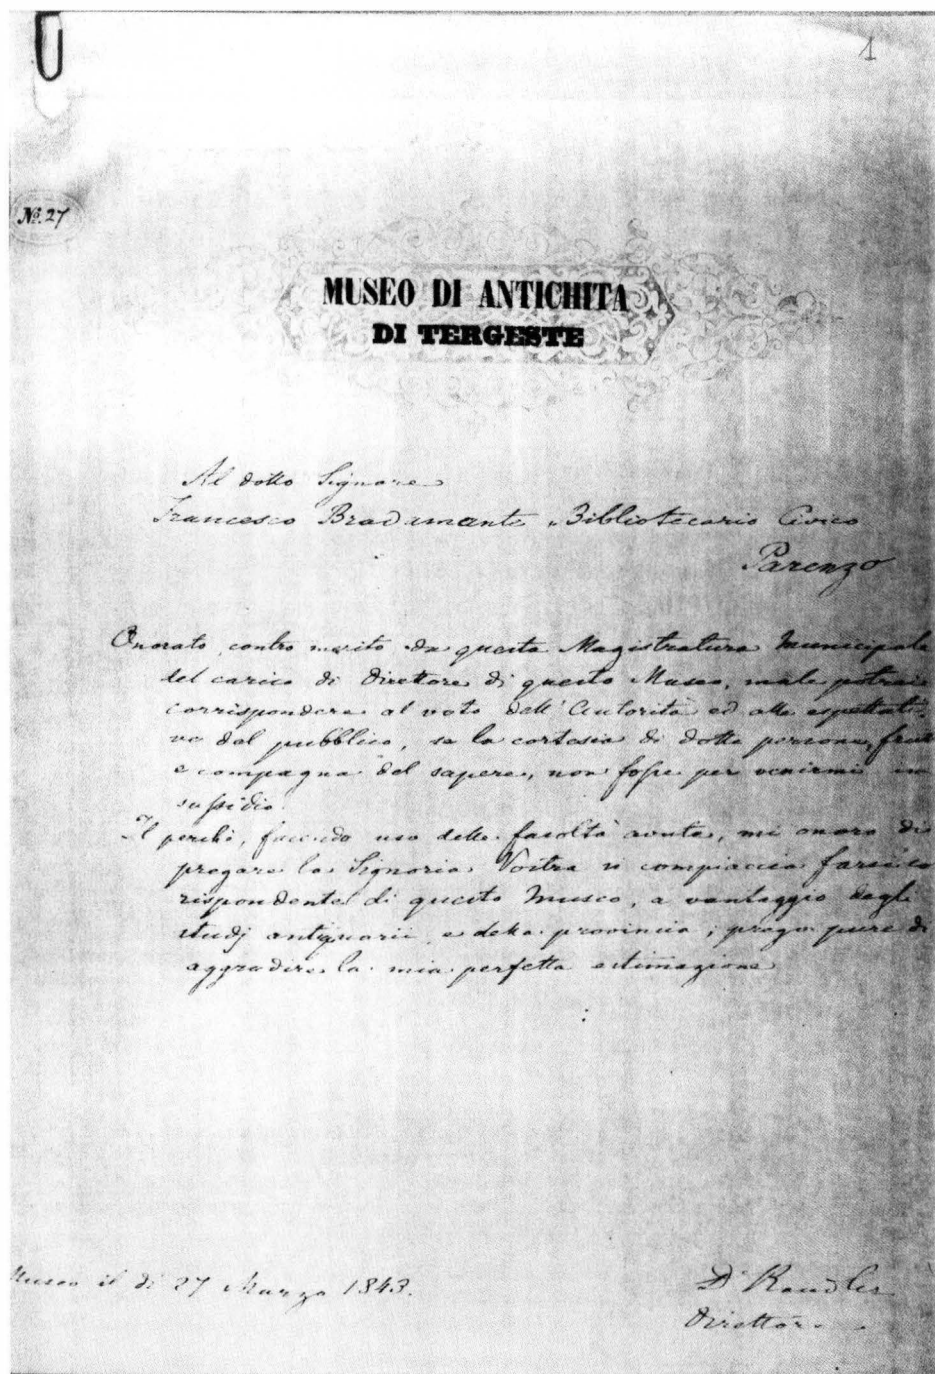 1
No. 27
MUSEO DI ANTICHITA
DI TERGESTE
Al dotto Signore
Francesco Bradamante Bibliotecario Civico
Parenzo
Onorato, contro merito da questa Magistratura Municipale
del carico di Direttore di questo Museo, male potrei
corrispondere al voto dell'Autorità ed alle espettati-
va del pubblico, se la cortesia di dotte persone,
e compagna del sapere, non fosse per venirmi in
sussidio.
Il perchè, facendo uso delle facoltà avute, mi onoro di
pregare la Signoria Vostra si compiaccia farsi co
rispondente di questo Museo, a vantaggio degli
studj antiquarii e della provincia; prego pure di
aggradire la mia perfetta estimazione
Museo il dì 27 Marzo 1843.
Dr Kandler
Direttore